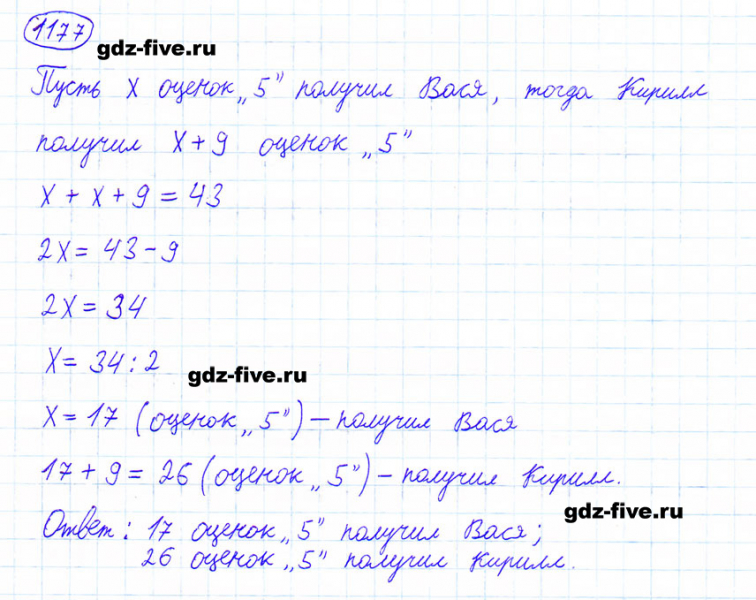 1177
gdz-five.ru
Пусть x оценок „5” получил Вася, тогда Кирилл
получил x + 9 оценок „5”
x + x + 9 = 43
2x = 43 - 9
2x = 34
x = 34 : 2
gdz-five.ru
x = 17 (оценок „5”) – получил Вася
17 + 9 = 26 (оценок „5”) – получил Кирилл.
gdz-five.ru
Ответ: 17 оценок „5” получил Вася;
26 оценок „5” получил Кирилл.